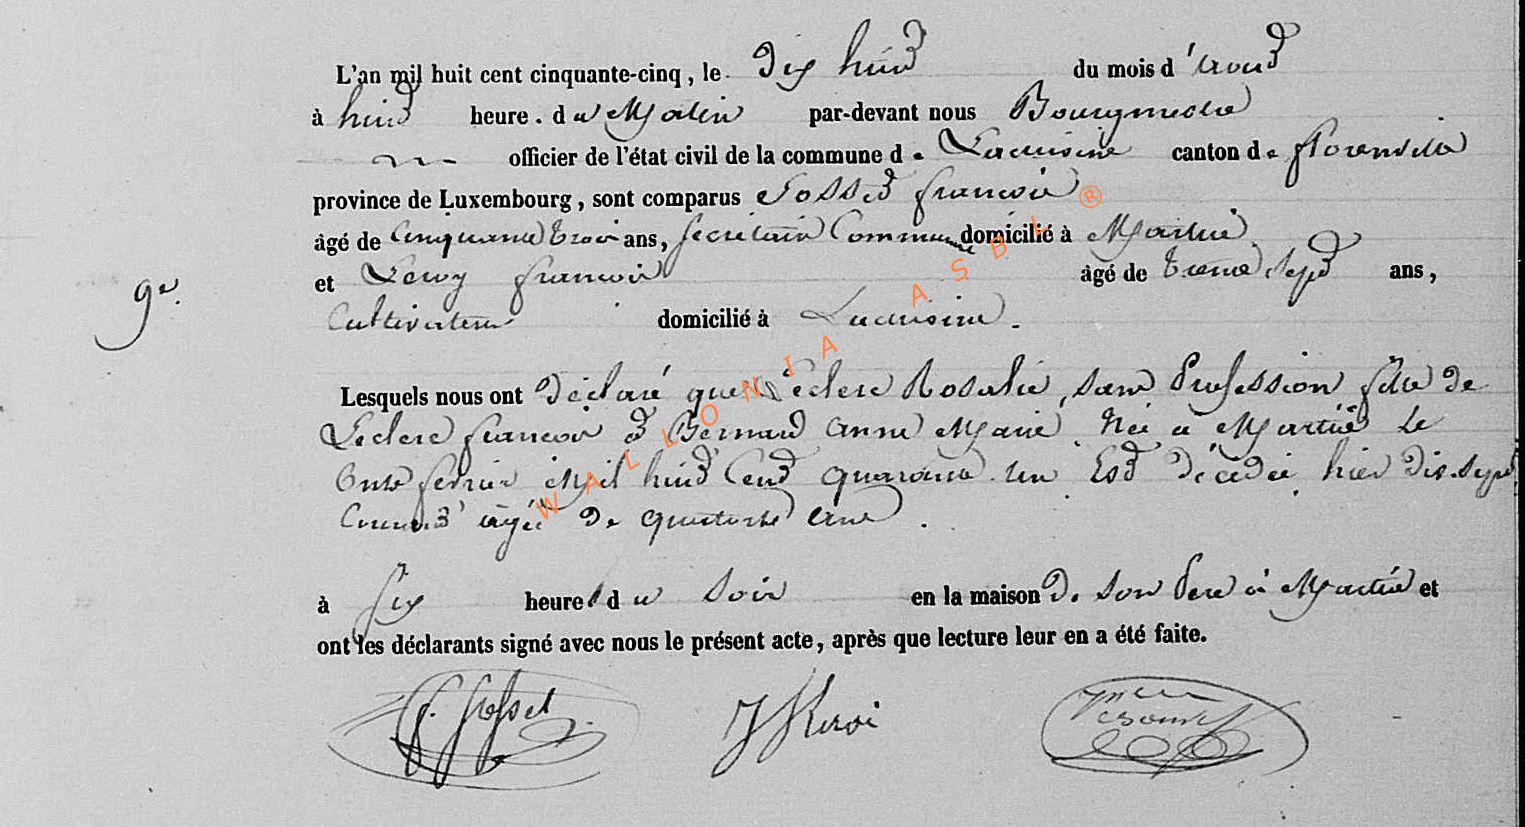 L'an mil huit cent cinquante-cinq, le Dix huit du mois d'aout
à huit heure. du Matin par-devant nous Bourgmestre
officier de l'état civil de la commune de Lacuisine canton de florenville
province de Luxembourg, sont comparus Gosset francois
âgé de Cinquante trois ans, secretaire Communal domicilié à Martué
et Leroy francois âgé de trente sept ans,
9e.
Cultivateur domicilié à Lacuisine.
Lesquels nous ont Déclaré que Leclerc Rosalie, sans Profession fille de
Leclerc francois et Bernard anne Marie Née a Martué Le
Onze fevrier Mil huit Cent quarante un Est Décedée hier dix-sept
Courant agée De quatorze ans.
à six heure du soir en la maison De son Pere à Martué et
ont les déclarants signé avec nous le présent acte, après que lecture leur en a été faite.
f. Gosset J f Leroi
WALLONIA ASBL ®